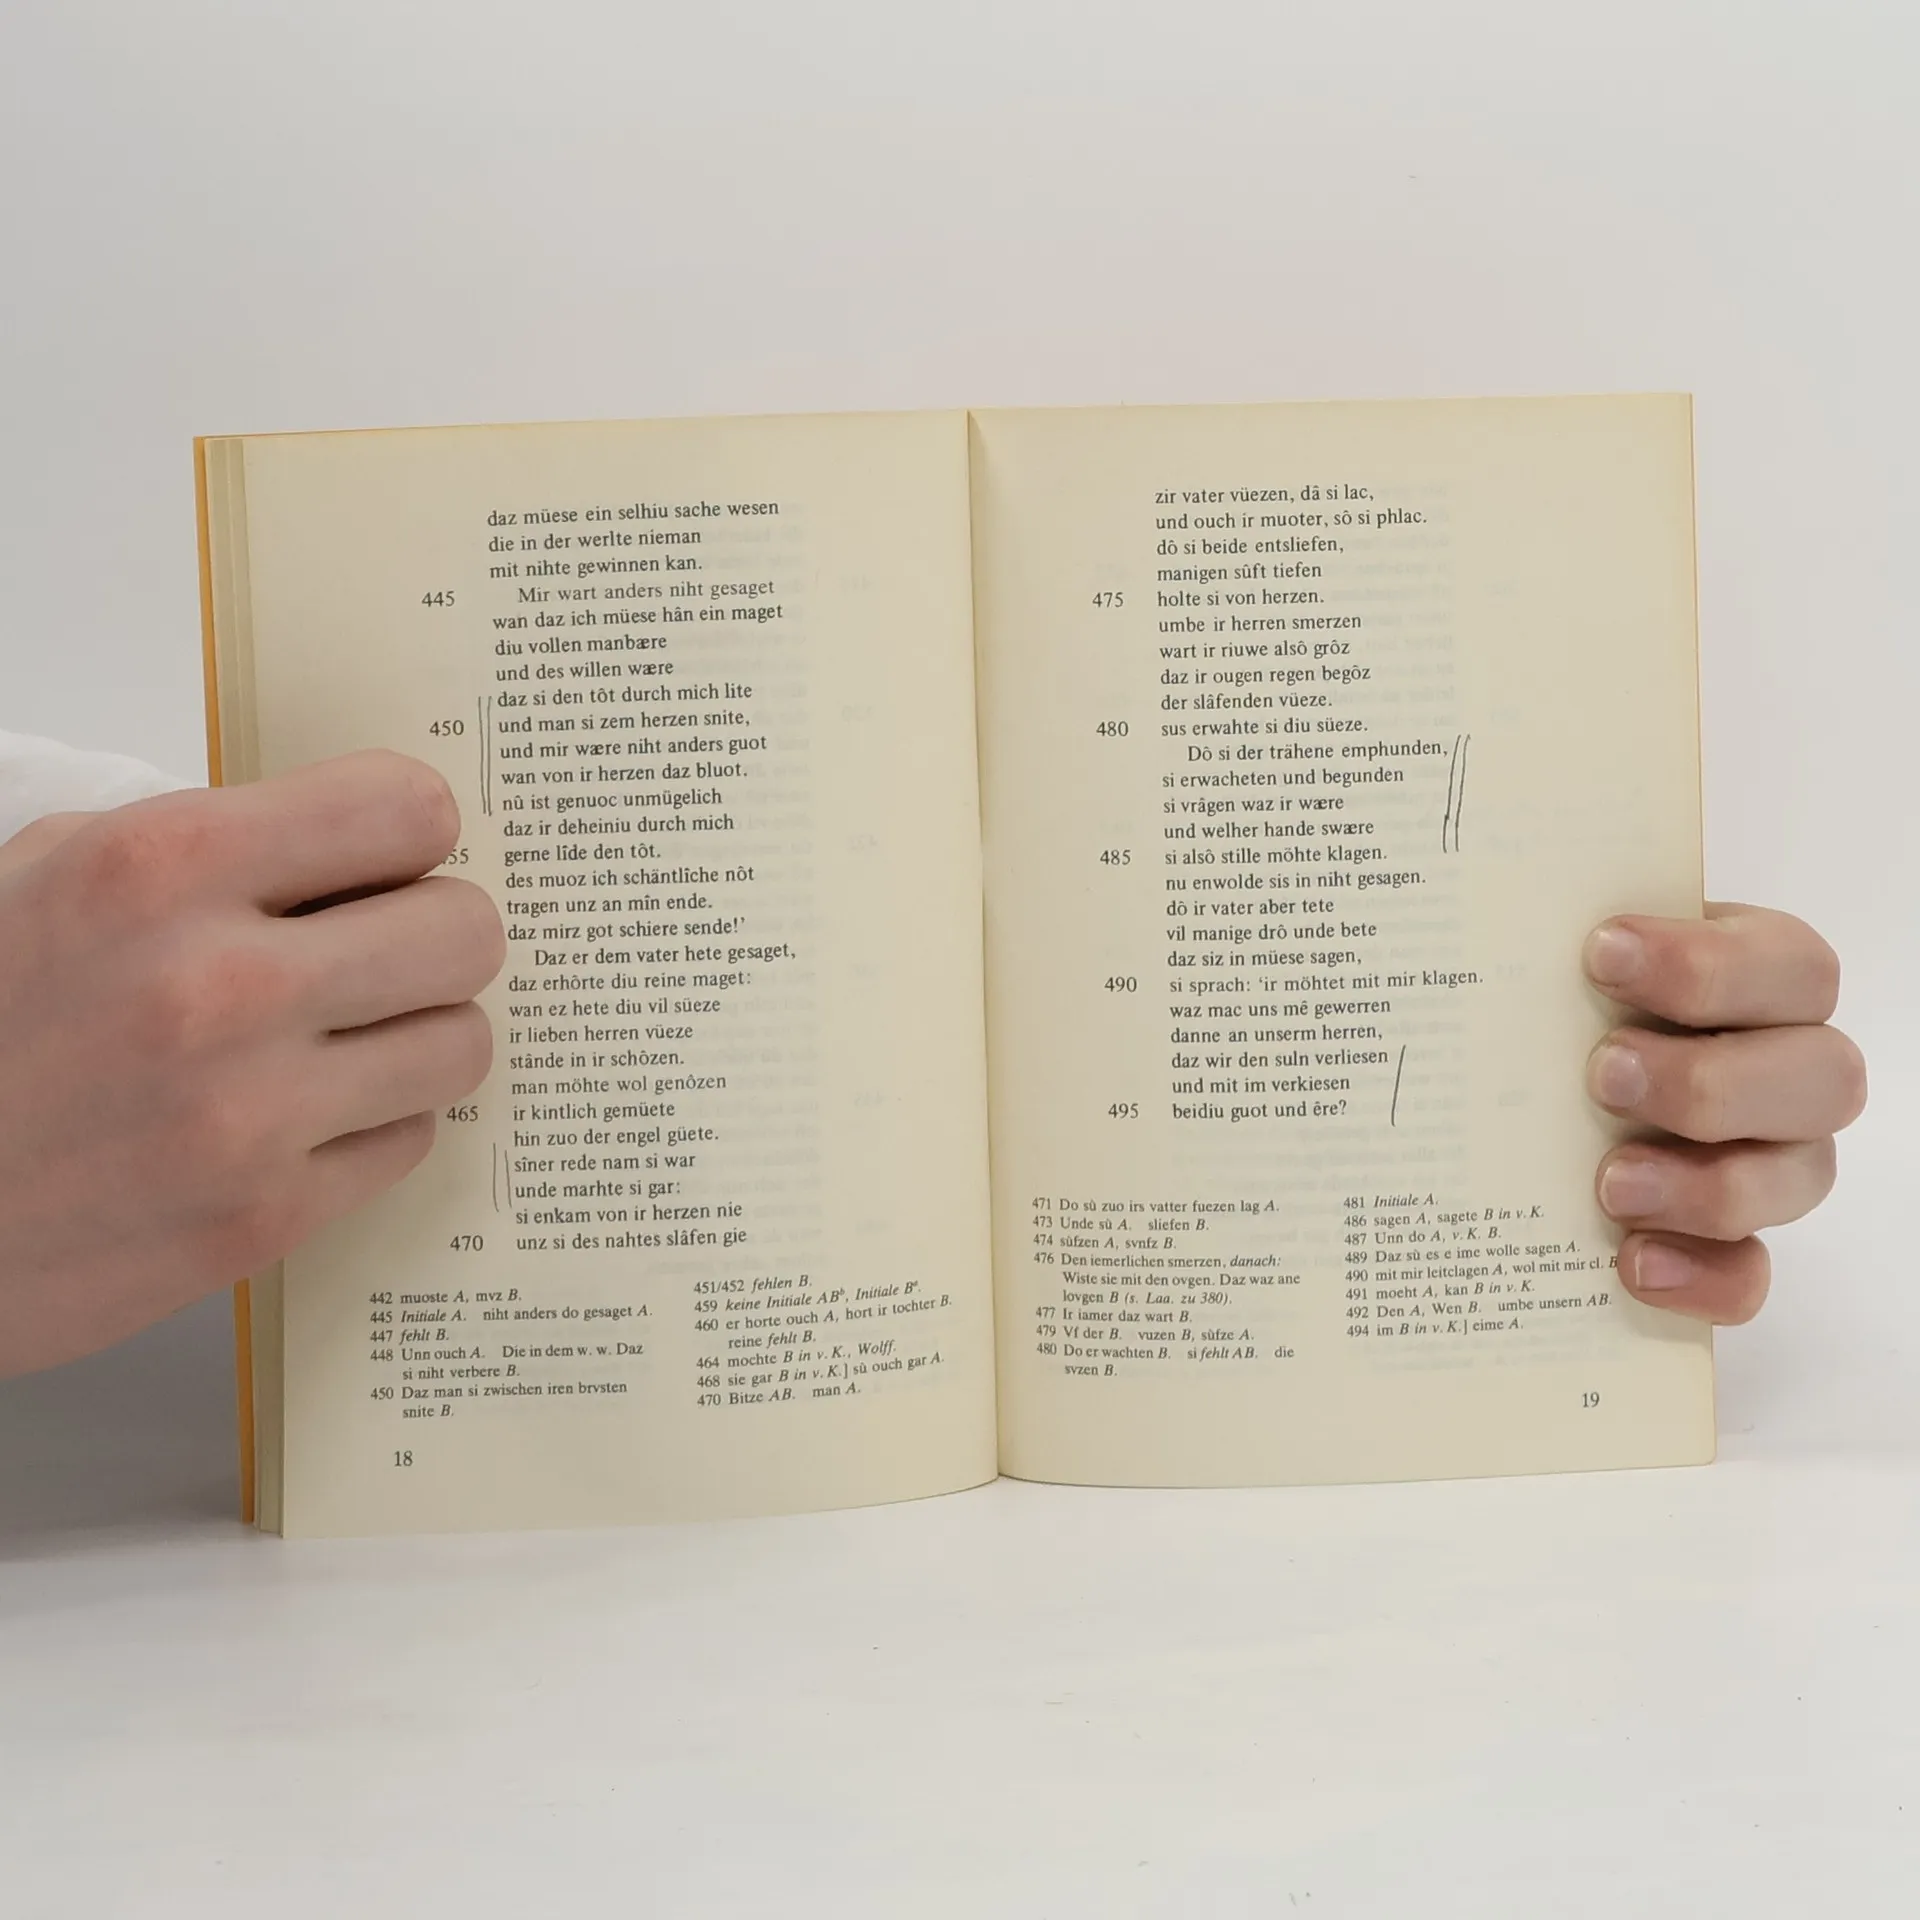 daz müese ein selhiu sache wesen
die in der werlte nieman
mit nihte gewinnen kan.
445 Mir wart anders niht gesaget
wan daz ich müese hân ein maget
diu vollen manbære
und des willen wære
daz si den tôt durch mich lite
450 und man si zem herzen snite,
und mir wære niht anders guot
wan von ir herzen daz bluot.
nû ist genuoc unmügelich
daz ir deheiniu durch mich
55 gerne lîde den tôt.
des muoz ich schäntlîche nôt
tragen unz an mîn ende.
daz mirz got schiere sende!’
Daz er dem vater hete gesaget,
daz erhôrte diu reine maget:
wan ez hete diu vil süeze
ir lieben herren vüeze
stânde in ir schôzen.
man möhte wol genôzen
465 ir kintlich gemüete
hin zuo der engel güete.
sîner rede nam si war
unde marhte si gar:
si enkam von ir herzen nie
470 unz si des nahtes slâfen gie
442 muoste A, mvz B.
445 Initiale A. niht anders do gesaget A.
447 fehlt B.
448 Unn ouch A. Die in dem w. w. Daz
si niht verbere B.
450 Daz man si zwischen iren brvsten
snite B.
451/452 fehlen B.
459 keine Initiale ABᵇ, Initiale Bᵃ.
460 er horte ouch A, hort ir tochter B.
reine fehlt B.
464 mochte B in v. K., Wolff.
468 sie gar B in v. K.] sû ouch gar A.
470 Bitze AB. man A.
18
zir vater vüezen, dâ si lac,
und ouch ir muoter, sô si phlac.
dô si beide entsliefen,
manigen sûft tiefen
475 holte si von herzen.
umbe ir herren smerzen
wart ir riuwe alsô grôz
daz ir ougen regen begôz
der slâfenden vüeze.
480 sus erwahte si diu süeze.
Dô si der trähene emphunden,
si erwacheten und begunden
si vrâgen waz ir wære
und welher hande swære
485 si alsô stille möhte klagen.
nu enwolde sis in niht gesagen.
dô ir vater aber tete
vil manige drô unde bete
daz siz in müese sagen,
490 si sprach: ‘ir möhtet mit mir klagen.
waz mac uns mê gewerren
danne an unserm herren,
daz wir den suln verliesen
und mit im verkiesen
495 beidiu guot und êre?
471 Do sû zuo irs vatter fuezen lag A.
473 Unde sû A. sliefen B.
474 sûfzen A, svnfz B.
476 Den iemerlichen smerzen, danach:
Wiste sie mit den ovgen. Daz waz ane
lovgen B (s. Laa. zu 380).
477 Ir iamer daz wart B.
479 Vf der B. vuzen B, sûfze A.
480 Do er wachten B. si fehlt AB. die
svzen B.
481 Initiale A.
486 sagen A, sagete B in v. K.
487 Unn do A, v. K. B.
489 Daz sû es e ime wolle sagen A.
490 mit mir leitclagen A, wol mit mir cl. B
491 moeht A, kan B in v. K.
492 Den A, Wen B. umbe unsern AB.
494 im B in v. K.] eime A.
19